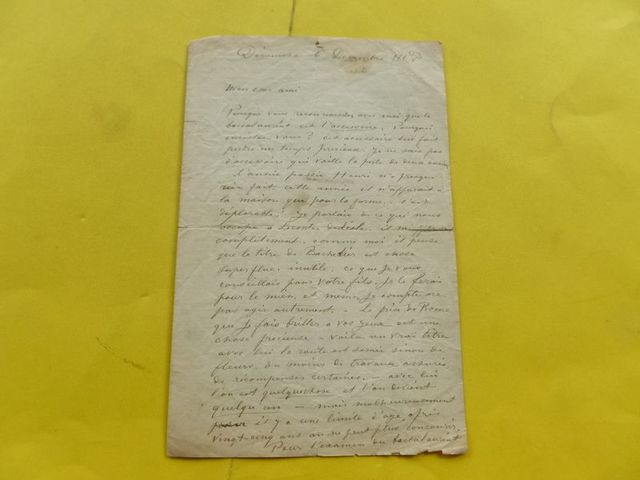 Dimanche 6 Decembre
Mon cher ami
Pourquoi vous reconnaissez avec moi que le
baccalauréat est l'accessoire. Pourquoi
vous? cet accessoire lui fait
perdre un temps précieux. Je ne sais pas
d'accessoire qui vaille la perte de deux années
l'année passée Henri n'a presque
rien fait cette année il n'apparait à
la maison que pour la forme. c'est
déplorable! Je parlais de ce qui nous
occupe à Leconte de Lisle. il
complètement. comme moi il pense
que le titre de Bachelier est chose
superflue, inutile. ce que je vous
conseillais pour votre fils, je le ferais
pour le mien, et même je compte ne
pas agir autrement. Le prix de Rome
que je fais briller à vos yeux est une
chose précieuse. voila un vrai titre
avec lui la route est semée sinon de
fleurs, du moins de travaux assurés
de récompenses certaines. avec lui
l'on est quelquechose et l'on devient
quelqu'un — mais malheureusement
il y a une limite d'age après
vingt-cinq ans on ne peut plus concourir.
Pour l'examen du baccalauréat